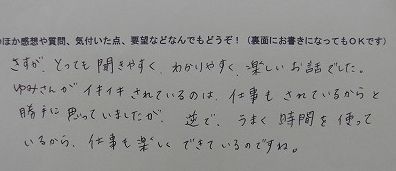 のほか感想や質問、気付いた点、要望などなんでもどうぞ！（裏面にお書きになってもＯＫです）
さすが、とっても聞きやすく、わかりやすく、楽しいお話でした。
ゆみさんがイキイキされているのは、仕事もされているからと
勝手に思っていましたが、逆で、うまく時間を使って
いるから、仕事も楽しくできているのですね。